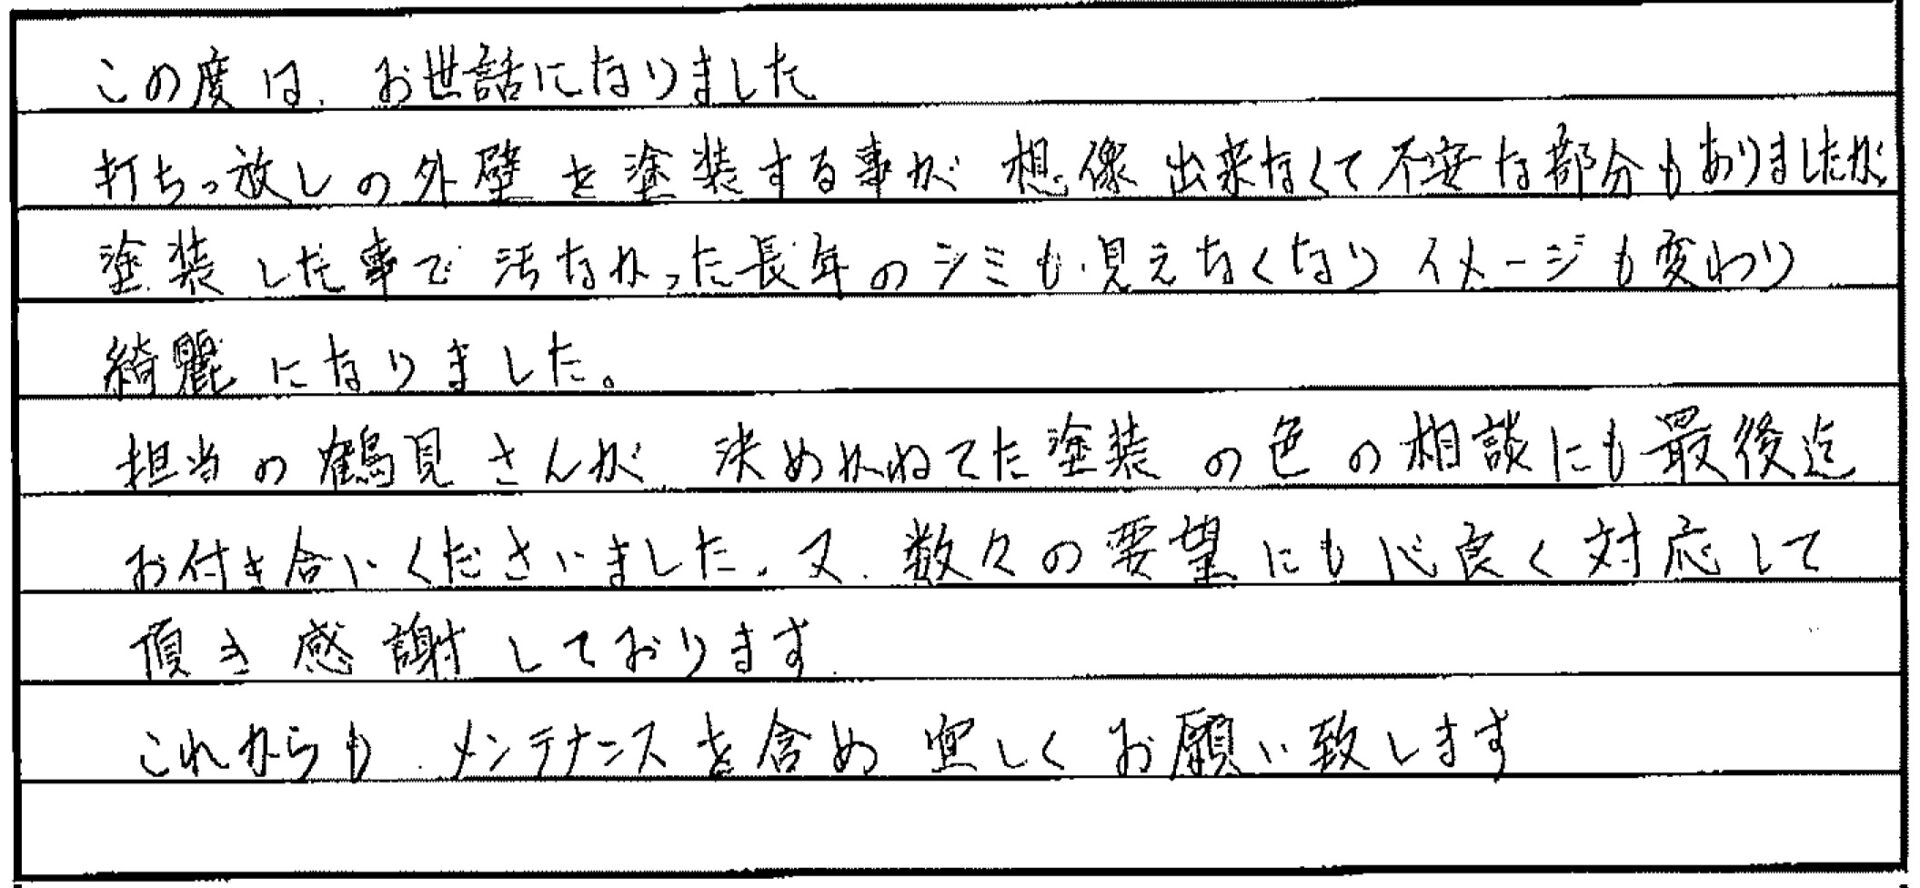 この度は、お世話になりました
打ちっ放しの外壁を塗装する事が想像出来なくて不安な部分もありましたが、
塗装した事で汚なかった長年のシミも見えなくなりイメージも変わり
綺麗になりました。
担当の鶴見さんが決めかねてた塗装の色の相談にも最後迄
お付き合いくださいました。又、数々の要望にも心良く対応して
頂き感謝しております
これからもメンテナンスを含め宜しくお願い致します